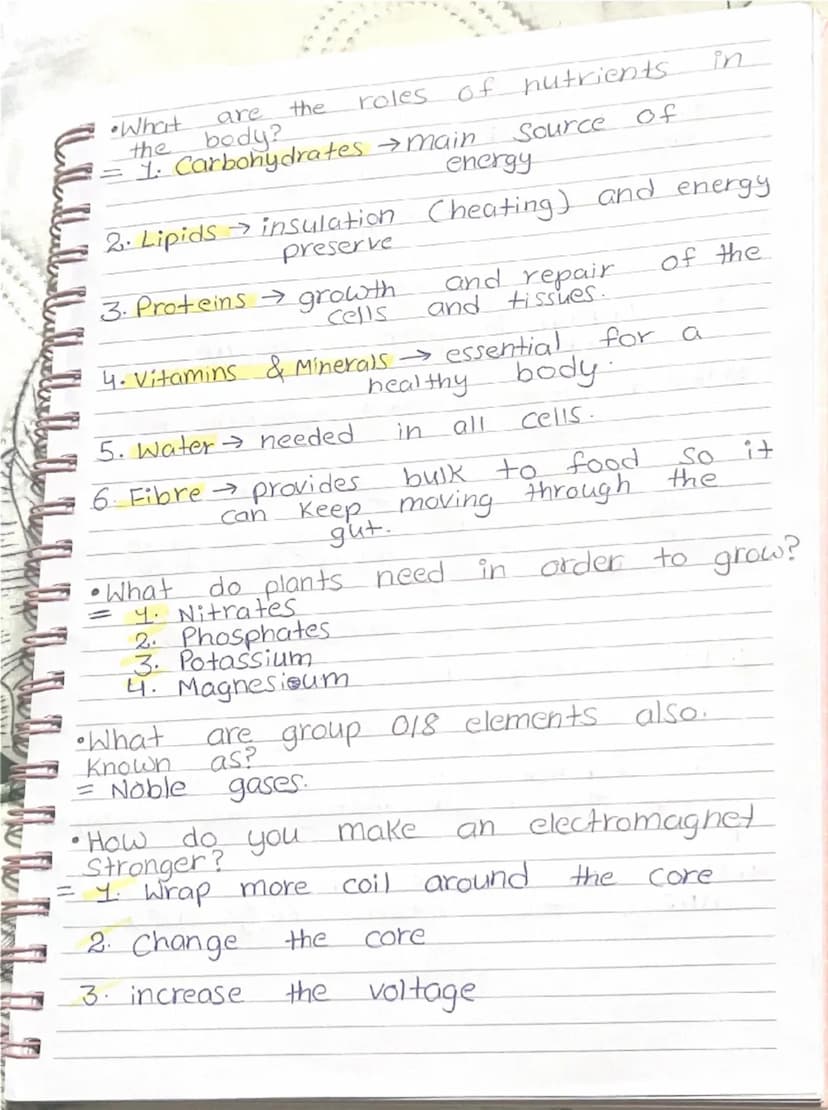 •What are the roles of nutrients in
the body?
= 1. Carbohydrates → main source of
energy
2. Lipids → insulation (heating) and energy
preserve
3. Proteins → growth and repair of the
cells and tissues.
4. Vitamins & Minerals → essential for a
healthy body.
5. Water → needed in all cells.
6. Fibre → provides bulk to food so it
can keep moving through the
gut.
•What do plants need in order to grow?
= 1. Nitrates
2. Phosphates
3. Potassium
4. Magnesium
•What are group 0/8 elements also.
known as?
= Noble gases.
•How do you make an electromagnet
stronger?
= 1. Wrap more coil around the core
2. Change the core
3. increase the voltage